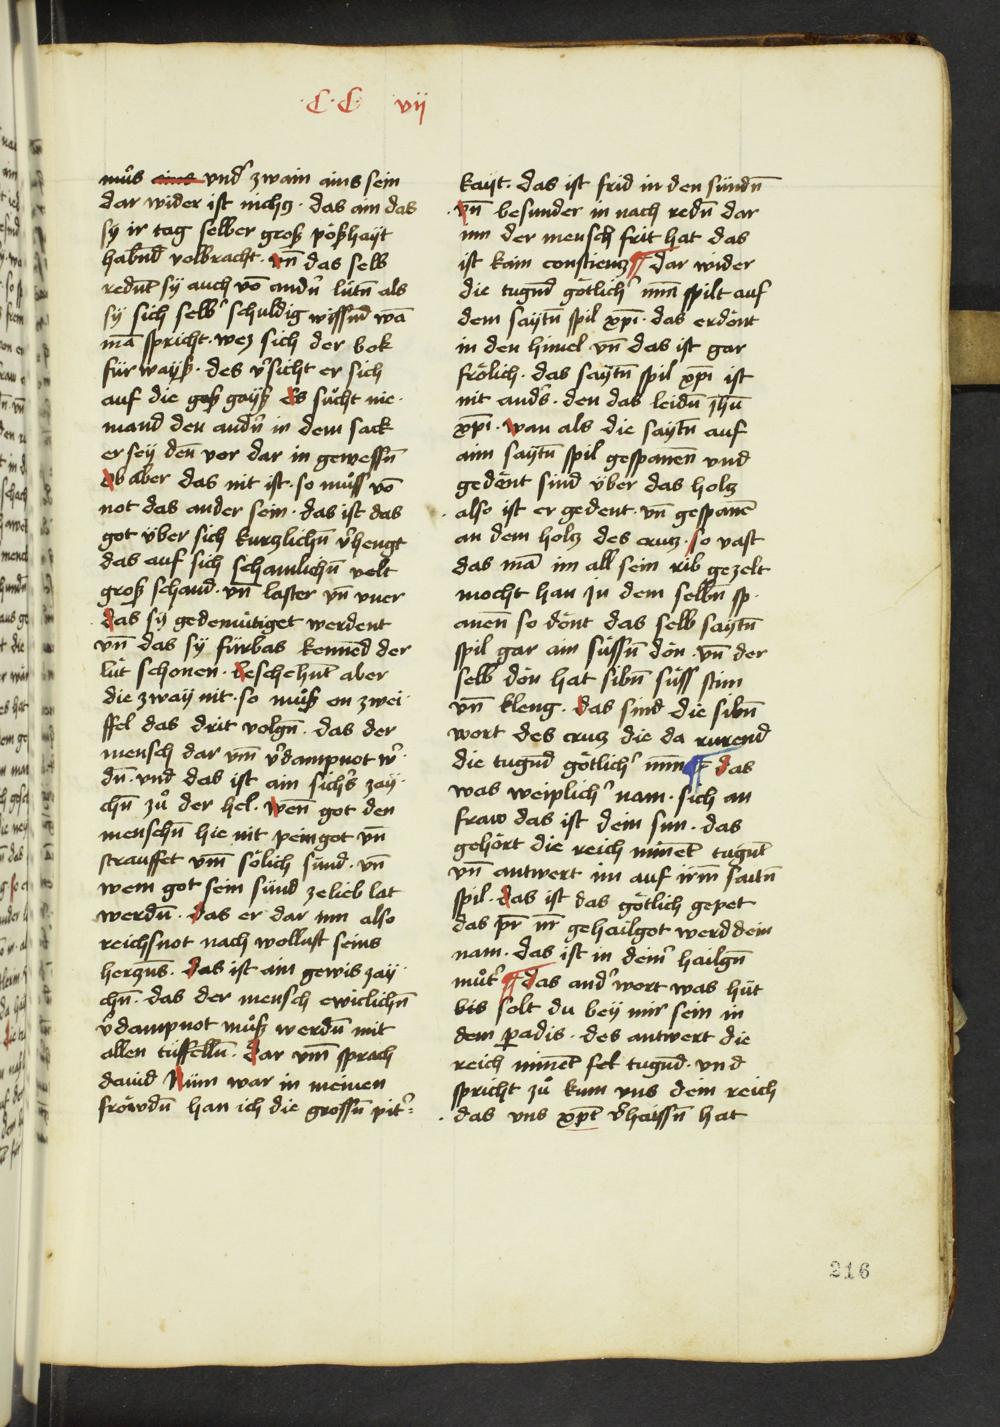 C C vii
můs ains und zwain ains sein
dar wider ist nichcz · das ain das
sy ir tag selber groß pößhayt
habnd volbracht · vn̄ das selb
rednt sy auch vō andn̄ lütn̄ als
sy sich selbs schuldig wissnd wā
mā spricht · wez sich der bok
für wayß · des v̓sicht er sich
auf die goß gayß Es sůcht nie ·
mand den andn̄ in dem sack
er sey den̄ vor dar in gewessn̄
Ob aber das nit ist · so můss vō
not das ander sein · das ist das
got über sich kurczlichn̄ v̓hengt
das auf sich schamlichn̄ velt
groß schand · vn̄ laster vn̄ vner
das sy gedemütiget werdent
vn̄ das sy fürbas kennēd der
lüt schonen · beschehnt aber
die zway nit · so můß on zwei ·
ffel das drit volgn̄ · das der
mensch dar vm̄ v̓dampnot w̓ ·
dn̄ · und das ist ain sichs̓ zay ·
chn̄ zů der hel · Wen̄ got den
menschn̄ hie nit peingot vn̄
strauffet vm̄ sölich sünd · vn̄
wem got sein sünd ze lieb lat
werdn̄ · das er dar inn also
reichsnot nach wollust seins
herczns̄ · das ist ain gewis zay
chn̄ · das der mensch ewiclichn̄
v̓dampnot můß werdn̄ mit
allen tüffelln̄ · dar vm̄ sprach
dauid Nüm war in meinen
fröwdn̄ han ich die grossn̄ pit̓ =
kayt · das ist frid in den sündn̄
vn̄ besunder in nach redn̄ dar
inn der mensch frit hat das
ist kain conscienz ¶ dar wider
die tugnd götlich̓ min̄ spilt auf
dem saytn̄ spil xp̄i · das erdönt
in den himel · vn̄ das ist gar
frölich · das saytn̄ spil xp̄i ist
nit ands̓ · den das leidn̄ ih̄u
xp̄i · wan als die saytn̄ auf
aim saytn̄ spil gespanen̄ vnd
gedönt sind über das holcz
also ist er gedent · vn̄ gespanē
an dem holcz des crucz · so vast
das mā im all sein rib gezelt
mocht han In dem selbn̄ sp ·
anen̄ so dönt das selb saytn̄
spil gar ain süssn̄ don · vn̄ der
selb dön hat sibn̄ süss stim
vn̄ kleng · das sind die sibn̄
wort des crucz die da rurend
die tugnd götlich̓ min̄ ¶ das
was weiplich̓ nam · sich an
fraw das ist dein sun · das
gehört die reich minet̄ tugnt̄
vn̄ antwert im auf irm̄ saitn̄
spil · das ist das götlich gepet
das p̄r nr̄ gehailgot werd dein
nam · das ist in deim̓ hailgn̄
můt̓ ¶ das and̓ wort was hüt
bis solt du bey mir sein in
dem p̄adis · des antwert die
reich minet̄ fel tugnd · vnd
spricht zů kum vns dem reich
das vns xp̄t v̓haissn̄ hat
216